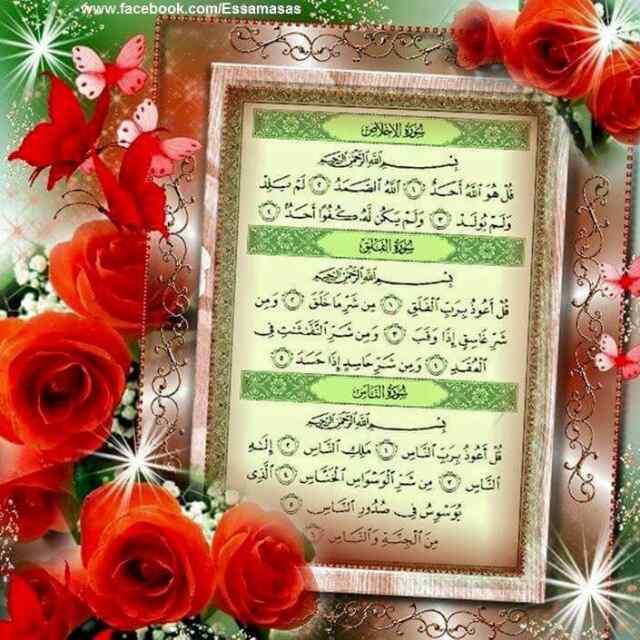 www.facebook.com/Essamasas
سُورَةُ الإِخْلَاصِ
بِسْمِ اللَّهِ الرَّحْمَٰنِ الرَّحِيمِ
قُلْ هُوَ اللَّهُ أَحَدٌ ١ اللَّهُ الصَّمَدُ ٢ لَمْ يَلِدْ
وَلَمْ يُولَدْ ٣ وَلَمْ يَكُن لَّهُ كُفُوًا أَحَدٌ ٤
سُورَةُ الفَلَقِ
بِسْمِ اللَّهِ الرَّحْمَٰنِ الرَّحِيمِ
قُلْ أَعُوذُ بِرَبِّ الْفَلَقِ ١ مِن شَرِّ مَا خَلَقَ ٢ وَمِن
شَرِّ غَاسِقٍ إِذَا وَقَبَ ٣ وَمِن شَرِّ النَّفَّٰثَٰتِ فِي
الْعُقَدِ ٤ وَمِن شَرِّ حَاسِدٍ إِذَا حَسَدَ ٥
سُورَةُ النَّاسِ
بِسْمِ اللَّهِ الرَّحْمَٰنِ الرَّحِيمِ
قُلْ أَعُوذُ بِرَبِّ النَّاسِ ١ مَلِكِ النَّاسِ ٢ إِلَٰهِ
النَّاسِ ٣ مِن شَرِّ الْوَسْوَاسِ الْخَنَّاسِ ٤ الَّذِي
يُوَسْوِسُ فِي صُدُورِ النَّاسِ ٥
مِنَ الْجِنَّةِ وَالنَّاسِ ٦